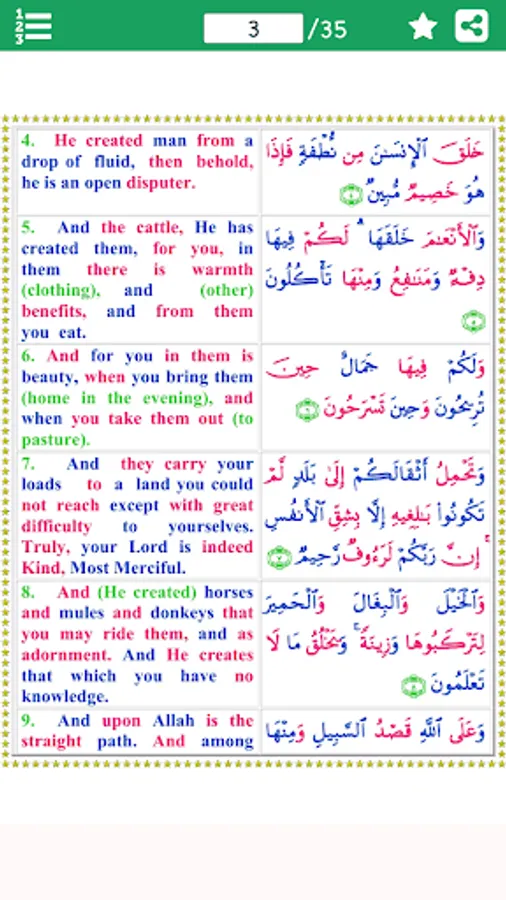 1
2
3
3
/35
4. He created man from a
drop of fluid, then behold,
he is an open disputer.
خَلَقَ ٱلْإِنسَٰنَ مِن نُّطْفَةٍ فَإِذَا
هُوَ خَصِيمٌ مُّبِينٌ ٤
5. And the cattle, He has
created them, for you, in
them there is warmth
(clothing), and (other)
benefits, and from them
you eat.
وَٱلْأَنْعَٰمَ خَلَقَهَا ۗ لَكُمْ فِيهَا
دِفْءٌ وَمَنَٰفِعُ وَمِنْهَا تَأْكُلُونَ
٥
6. And for you in them is
beauty, when you bring them
(home in the evening), and
when you take them out (to
pasture).
وَلَكُمْ فِيهَا جَمَالٌ حِينَ
تُرِيحُونَ وَحِينَ تَسْرَحُونَ ٦
7. And they carry your
loads to a land you could
not reach except with great
difficulty to yourselves.
Truly, your Lord is indeed
Kind, Most Merciful.
وَتَحْمِلُ أَثْقَالَكُمْ إِلَىٰ بَلَدٍ لَّمْ
تَكُونُوا۟ بَٰلِغِيهِ إِلَّا بِشِقِّ ٱلْأَنفُسِ
ۚ إِنَّ رَبَّكُمْ لَرَءُوفٌ رَّحِيمٌ ٧
8. And (He created) horses
and mules and donkeys that
you may ride them, and as
adornment. And He creates
that which you have no
knowledge.
وَٱلْخَيْلَ وَٱلْبِغَالَ وَٱلْحَمِيرَ
لِتَرْكَبُوهَا وَزِينَةً ۚ وَيَخْلُقُ مَا لَا
تَعْلَمُونَ ٨
9. And upon Allah is the
straight path. And among
وَعَلَى ٱللَّهِ قَصْدُ ٱلسَّبِيلِ وَمِنْهَا